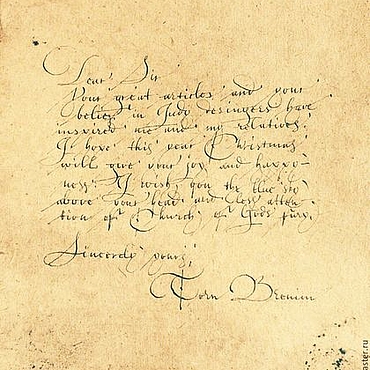 Dear Sir
Your great articles and your
belief in Judo designers have
inspired me and my relatives.
I hope this year Christmas
will give your joy and happi-
ness. I wish you the blue sky
above your head and less atten-
tion of Church of God's fury.
Sincerely yours,
Torn